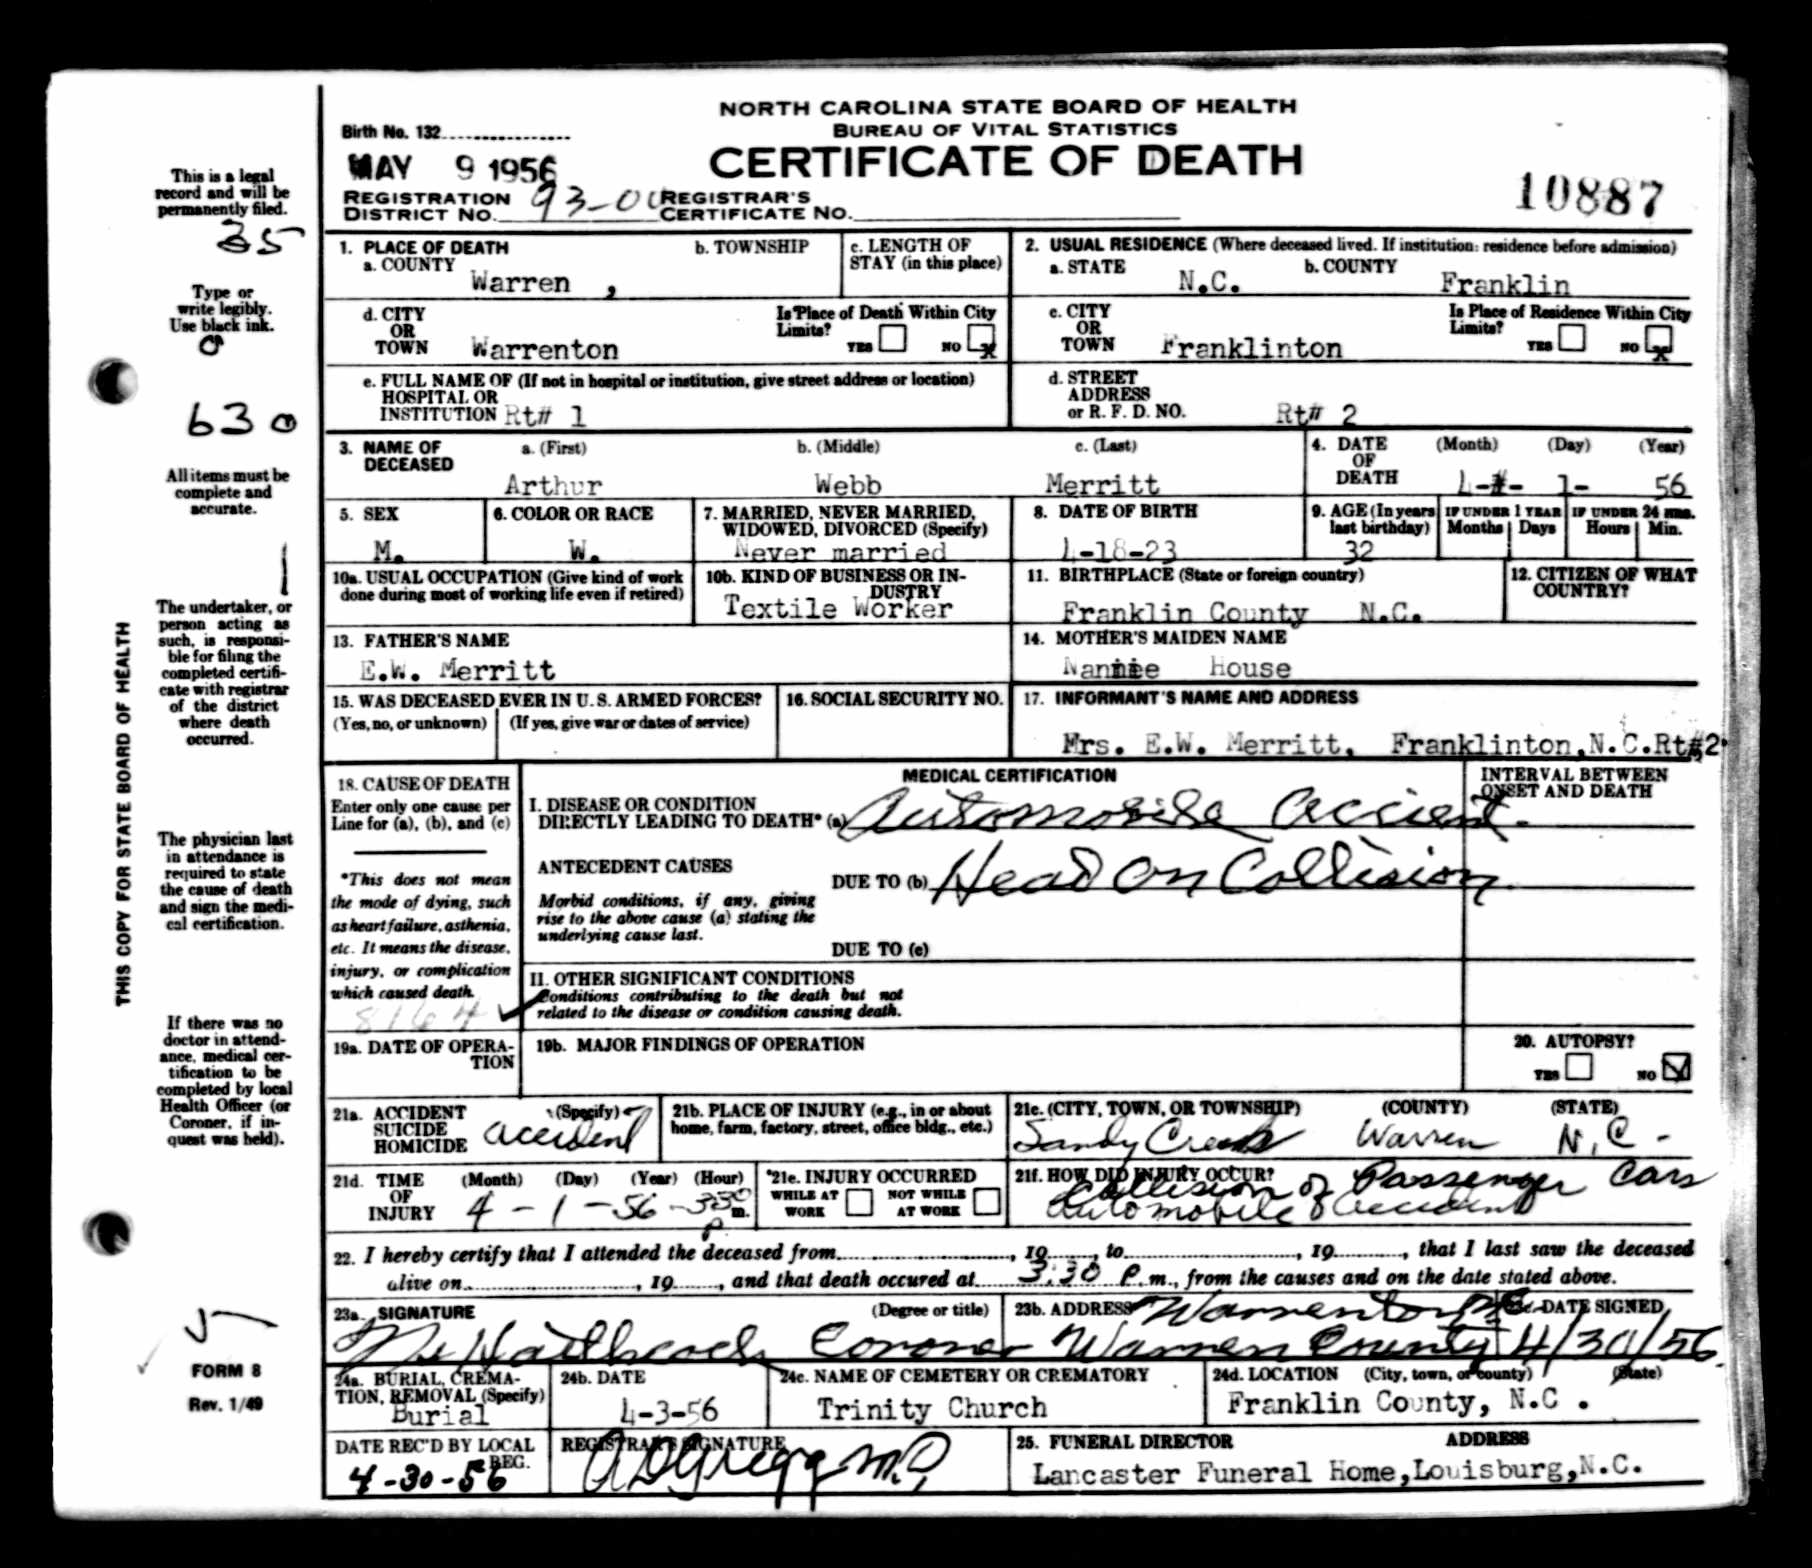 NORTH CAROLINA STATE BOARD OF HEALTH
Birth No. 132
BUREAU OF VITAL STATISTICS
MAY 9 1956
CERTIFICATE OF DEATH
10887
REGISTRATION DISTRICT NO. 93-00
REGISTRAR'S CERTIFICATE NO.
This is a legal
record and will be
permanently filed.
35
Type or
write legibly.
Use black ink.
0
630
All items must be
complete and
accurate.
1
The undertaker, or
person acting as
such, is responsi-
ble for filing the
completed certifi-
cate with registrar
of the district
where death
occurred.
The physician last
in attendance is
required to state
the cause of death
and sign the medi-
cal certification.
If there was no
doctor in attend-
ance, medical cer-
tification to be
completed by local
Health Officer (or
Coroner, if in-
quest was held).
FORM 8
Rev. 1/49
THIS COPY FOR STATE BOARD OF HEALTH
1. PLACE OF DEATH
a. COUNTY Warren ,
b. TOWNSHIP
c. LENGTH OF
STAY (in this place)
2. USUAL RESIDENCE (Where deceased lived. If institution: residence before admission)
a. STATE N.C.
b. COUNTY Franklin
d. CITY
OR
TOWN Warrenton
Is Place of Death Within City
Limits? YES NO x
c. CITY
OR
TOWN Franklinton
Is Place of Residence Within City
Limits? YES NO x
e. FULL NAME OF (If not in hospital or institution, give street address or location)
HOSPITAL OR
INSTITUTION Rt# 1
d. STREET
ADDRESS
or R. F. D. NO. Rt# 2
3. NAME OF
DECEASED
a. (First) Arthur
b. (Middle) Webb
c. (Last) Merritt
4. DATE
OF
DEATH
(Month) (Day) (Year)
4- 1- 56
5. SEX
M.
6. COLOR OR RACE
W.
7. MARRIED, NEVER MARRIED,
WIDOWED, DIVORCED (Specify)
Never married
8. DATE OF BIRTH
4-18-23
9. AGE (In years
last birthday)
32
IF UNDER 1 YEAR
Months Days
IF UNDER 24 HRS.
Hours Min.
10a. USUAL OCCUPATION (Give kind of work
done during most of working life even if retired)
10b. KIND OF BUSINESS OR IN-
DUSTRY
Textile Worker
11. BIRTHPLACE (State or foreign country)
Franklin County N.C.
12. CITIZEN OF WHAT
COUNTRY?
13. FATHER'S NAME
E.W. Merritt
14. MOTHER'S MAIDEN NAME
Nannie House
15. WAS DECEASED EVER IN U. S. ARMED FORCES?
(Yes, no, or unknown) (If yes, give war or dates of service)
16. SOCIAL SECURITY NO.
17. INFORMANT'S NAME AND ADDRESS
Mrs. E.W. Merritt, Franklinton,N.C.Rt#2.
18. CAUSE OF DEATH
Enter only one cause per
Line for (a), (b), and (c)
*This does not mean
the mode of dying, such
as heart failure, asthenia,
etc. It means the disease,
injury, or complication
which caused death.
8164
MEDICAL CERTIFICATION
INTERVAL BETWEEN
ONSET AND DEATH
I. DISEASE OR CONDITION
DIRECTLY LEADING TO DEATH* (a) Automobile Accient.
ANTECEDENT CAUSES
DUE TO (b) Head On Collision
Morbid conditions, if any, giving
rise to the above cause (a) stating the
underlying cause last.
DUE TO (c)
II. OTHER SIGNIFICANT CONDITIONS
Conditions contributing to the death but not
related to the disease or condition causing death.
19a. DATE OF OPERA-
TION
19b. MAJOR FINDINGS OF OPERATION
20. AUTOPSY?
YES NO
21a. ACCIDENT
SUICIDE
HOMICIDE
(Specify)
accident
21b. PLACE OF INJURY (e.g., in or about
home, farm, factory, street, office bldg., etc.)
21c. (CITY, TOWN, OR TOWNSHIP) (COUNTY) (STATE)
Sandy Creek Warren N.C.
21d. TIME
OF
INJURY
(Month) (Day) (Year) (Hour)
4 - 1 - 56 - 330 P. m.
21e. INJURY OCCURRED
WHILE AT
WORK
NOT WHILE
AT WORK
21f. HOW DID INJURY OCCUR?
Collision of Passenger Cars
Automobile Accident
22. I hereby certify that I attended the deceased from , 19 , to , 19 , that I last saw the deceased
alive on , 19 , and that death occured at 3:30 P. m., from the causes and on the date stated above.
23a. SIGNATURE (Degree or title)
Haithcock Coroner
23b. ADDRESS Warrenton NC
Warren County
23c. DATE SIGNED
4/30/56
24a. BURIAL, CREMA-
TION, REMOVAL (Specify)
Burial
24b. DATE
4-3-56
24c. NAME OF CEMETERY OR CREMATORY
Trinity Church
24d. LOCATION (City, town, or county) (State)
Franklin County, N.C .
DATE REC'D BY LOCAL
REG.
4-30-56
REGISTRAR'S SIGNATURE
A D Gregg M.D.
25. FUNERAL DIRECTOR ADDRESS
Lancaster Funeral Home,Louisburg,N.C.